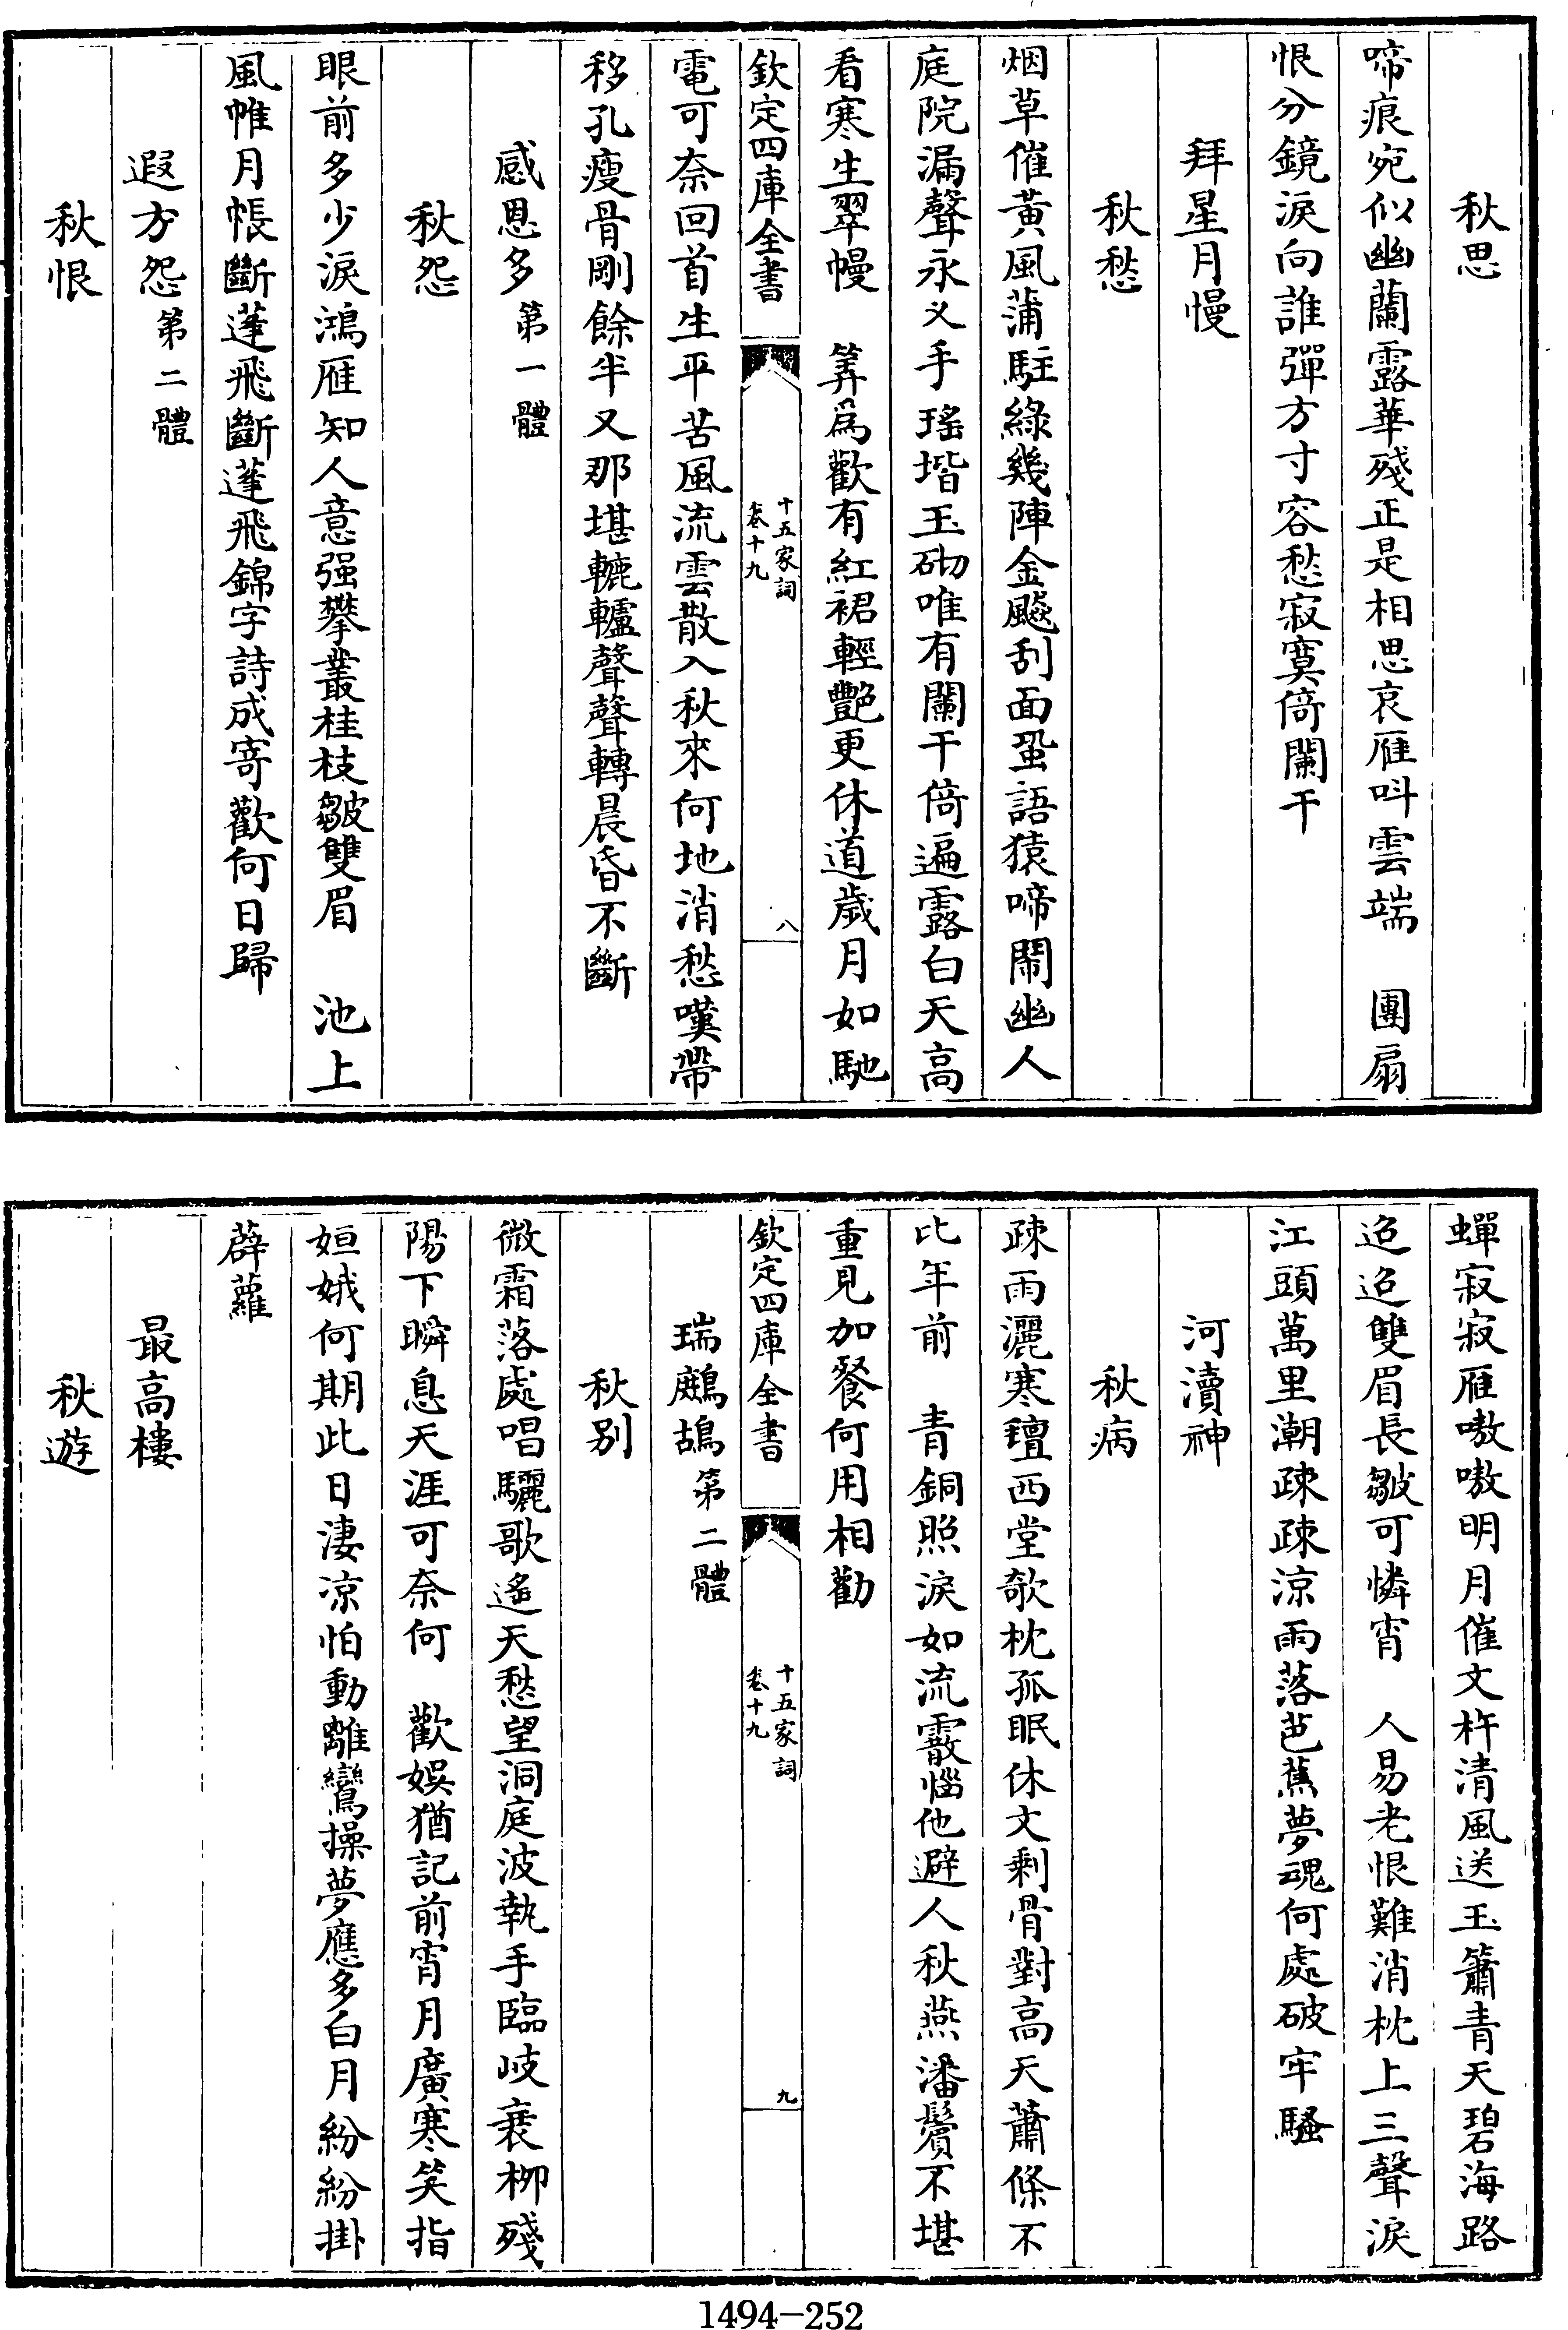 秋思
啼痕宛似幽蘭露華殘正是相思哀雁呌雲端　團扇
恨分鏡淚向誰彈方寸容愁寂寞倚闌干
拜星月慢
秋愁
烟草催黃風蒲駐綠幾陣金飈刮面蛩語猿啼鬧幽人
庭院漏聲永义手瑤堦玉砌唯有闌干倚遍露白天高
看寒生翠幔　筭爲歡有紅裙輕艷更休道歲月如馳
欽定四庫全書　十五家詞　卷十九　八
電可奈回首生平苦風流雲散入秋來何地消愁嘆帶
移孔瘦骨剛餘半又那堪轆轤聲聲轉晨昏不斷
感恩多第一體
秋怨
眼前多少淚鴻雁知人意强攀叢桂枝皺雙眉　池上
風帷月帳斷蓬飛斷蓬飛錦字詩成寄歡何日歸
遐方怨第二體
秋恨
蟬寂寂雁嗷嗷明月催文杵清風送玉簫青天碧海路
迢迢雙眉長皺可憐宵　人易老恨難消枕上三聲淚
江頭萬里潮疎疎涼雨落芭蕉夢魂何處破牢騷
河瀆神
秋病
疎雨灑寒氊西堂欹枕孤眠休文剩骨對高天蕭條不
比年前　青銅照淚如流霰惱他避人秋燕潘鬢不堪
重見加餐何用相勸
欽定四庫全書　十五家詞　卷十九　九
瑞鷓鴣第二體
秋别
微霜落處唱驪歌遙天愁望洞庭波執手臨岐衰柳殘
陽下瞬息天涯可奈何　歡娛猶記前宵月廣寒笑指
姮娥何期此日淒凉怕動離鸞操夢應多白月紛紛掛
薜蘿
最高樓
秋遊
1494-252